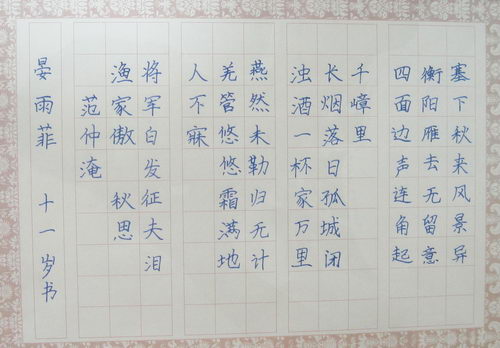 塞下秋来风景异
衡阳雁去无留意
四面边声连角起
千嶂里
长烟落日孤城闭
浊酒一杯家万里
燕然未勒归无计
羌管悠悠霜满地
人不寐
将军白发征夫泪
渔家傲 秋思
范仲淹
晏雨菲 十一岁书